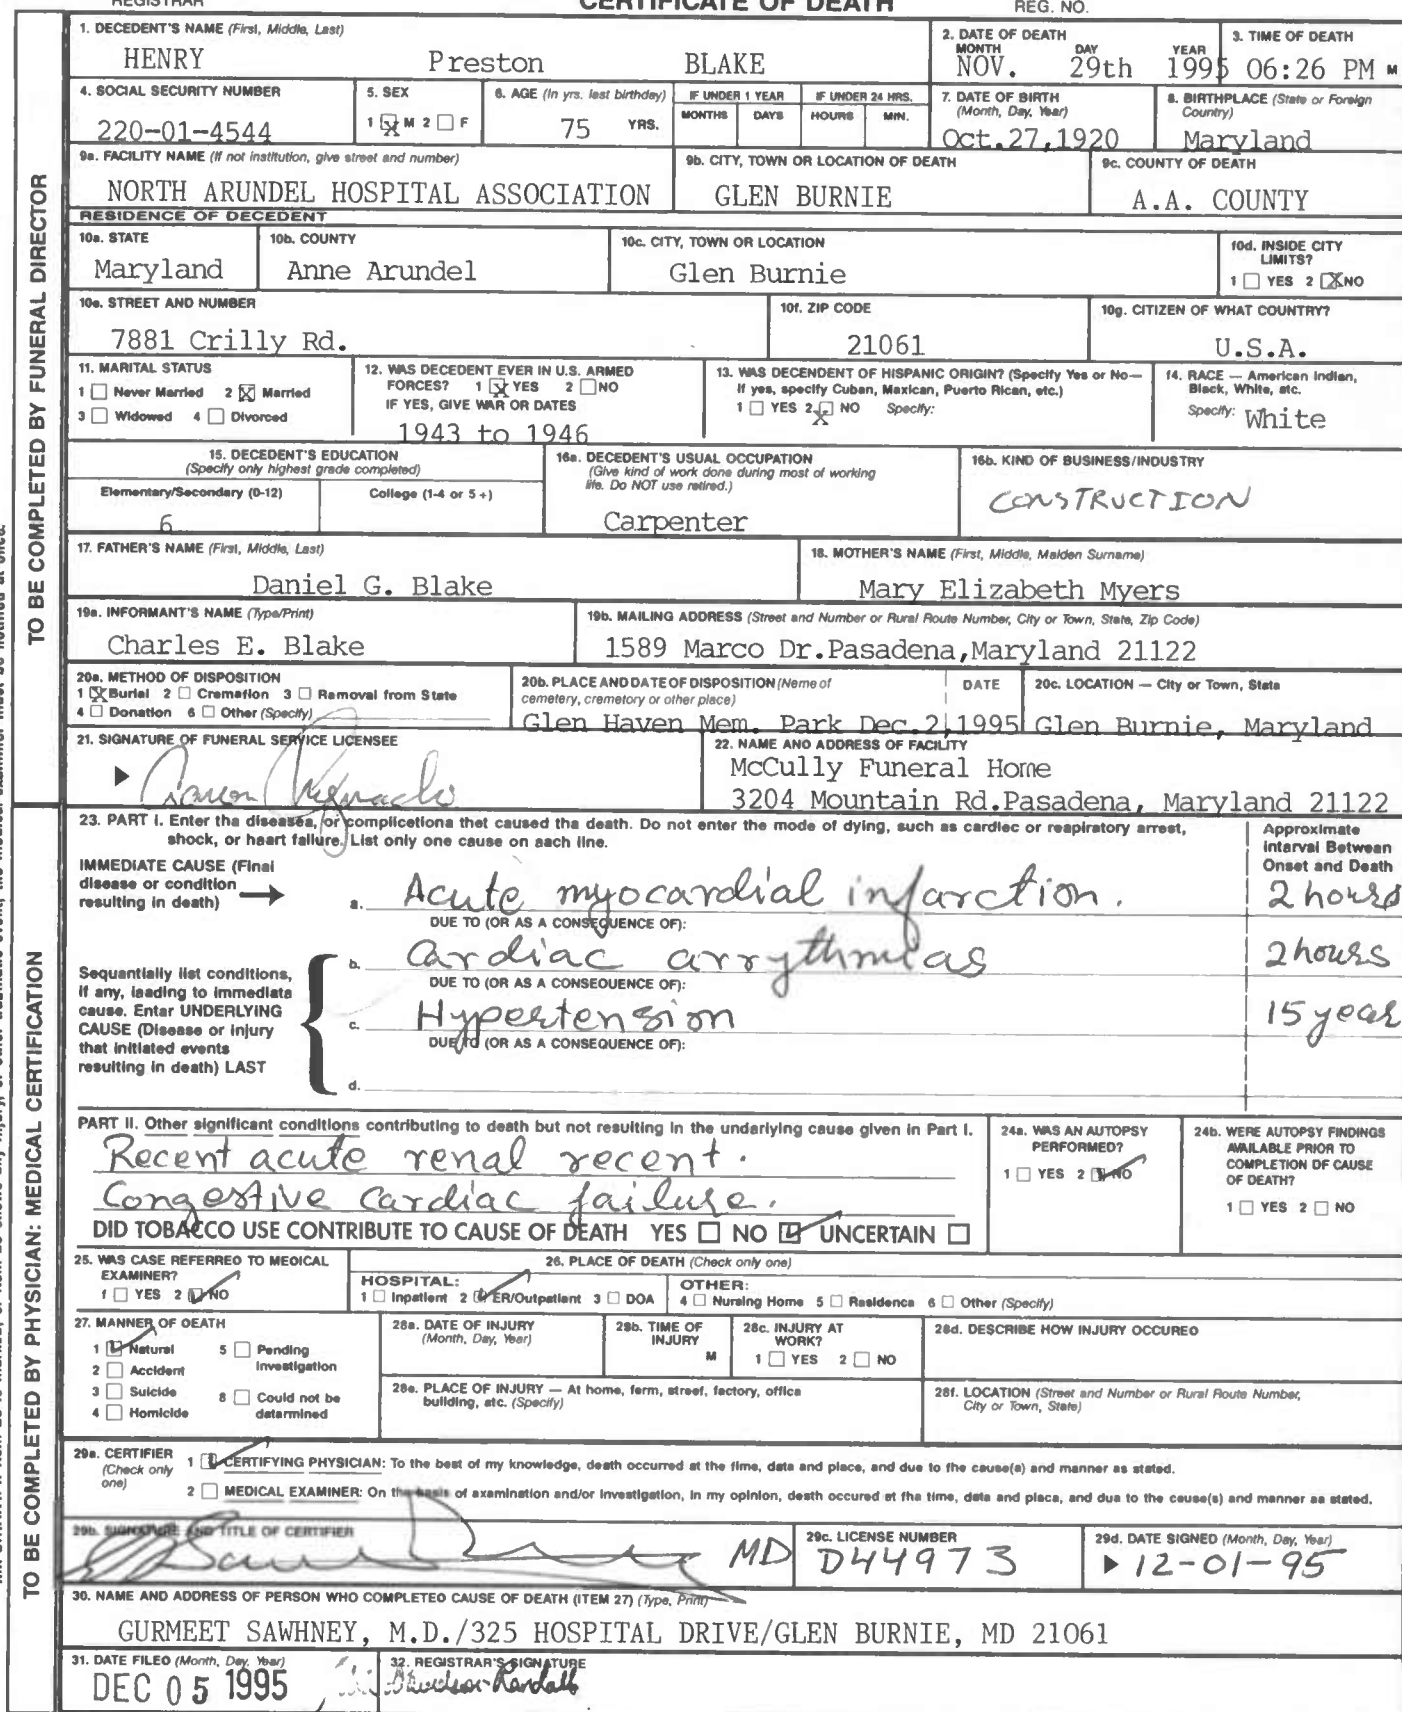 REGISTRAR CERTIFICATE OF DEATH REG. NO.
1. DECEDENT'S NAME (First, Middle, Last)
HENRY Preston BLAKE
2. DATE OF DEATH
MONTH DAY YEAR
NOV. 29th 1995
3. TIME OF DEATH
06:26 PM M
4. SOCIAL SECURITY NUMBER
220-01-4544
5. SEX
1 X M 2 F
6. AGE (In yrs. last birthday)
75 YRS.
IF UNDER 1 YEAR
MONTHS DAYS
IF UNDER 24 HRS.
HOURS MIN.
7. DATE OF BIRTH
(Month, Day, Year)
Oct.27,1920
8. BIRTHPLACE (State or Foreign
Country)
Maryland
9a. FACILITY NAME (If not institution, give street and number)
NORTH ARUNDEL HOSPITAL ASSOCIATION
9b. CITY, TOWN OR LOCATION OF DEATH
GLEN BURNIE
9c. COUNTY OF DEATH
A.A. COUNTY
RESIDENCE OF DECEDENT
10a. STATE
Maryland
10b. COUNTY
Anne Arundel
10c. CITY, TOWN OR LOCATION
Glen Burnie
10d. INSIDE CITY
LIMITS?
1 YES 2 X NO
10e. STREET AND NUMBER
7881 Crilly Rd.
10f. ZIP CODE
21061
10g. CITIZEN OF WHAT COUNTRY?
U.S.A.
11. MARITAL STATUS
1 Never Married 2 X Married
3 Widowed 4 Divorced
12. WAS DECEDENT EVER IN U.S. ARMED
FORCES? 1 X YES 2 NO
IF YES, GIVE WAR OR DATES
1943 to 1946
13. WAS DECENDENT OF HISPANIC ORIGIN? (Specify Yes or No—
If yes, specify Cuban, Maxican, Puerto Rican, etc.)
1 YES 2 X NO Specify:
14. RACE — American Indian,
Black, White, etc.
Specify: White
15. DECEDENT'S EDUCATION
(Specify only highest grade completed)
Elementary/Secondary (0-12) College (1-4 or 5+)
6
16a. DECEDENT'S USUAL OCCUPATION
(Give kind of work done during most of working
life. Do NOT use retired.)
Carpenter
16b. KIND OF BUSINESS/INDUSTRY
CONSTRUCTION
17. FATHER'S NAME (First, Middle, Last)
Daniel G. Blake
18. MOTHER'S NAME (First, Middle, Maiden Surname)
Mary Elizabeth Myers
19a. INFORMANT'S NAME (Type/Print)
Charles E. Blake
19b. MAILING ADDRESS (Street and Number or Rural Route Number, City or Town, State, Zip Code)
1589 Marco Dr.Pasadena,Maryland 21122
20a. METHOD OF DISPOSITION
1 X Burial 2 Cremation 3 Removal from State
4 Donation 6 Other (Specify)
20b. PLACE AND DATE OF DISPOSITION (Name of
cemetery, cremetory or other place)
DATE
Glen Haven Mem. Park Dec.2,1995
20c. LOCATION — City or Town, State
Glen Burnie, Maryland
21. SIGNATURE OF FUNERAL SERVICE LICENSEE
22. NAME AND ADDRESS OF FACILITY
McCully Funeral Home
3204 Mountain Rd.Pasadena, Maryland 21122
TO BE COMPLETED BY FUNERAL DIRECTOR
23. PART I. Enter tha diseases, or complicetions thet caused tha death. Do not enter the mode of dying, such as cardiec or reapiratory arrest,
shock, or heart failure. List only one cause on aach line.
Approximate
Intarval Between
Onset and Death
IMMEDIATE CAUSE (Final
disease or condition
resulting in death)
a. Acute myocardial infarction. 2 hours
DUE TO (OR AS A CONSEQUENCE OF):
b. Cardiac arrythmias 2 hours
DUE TO (OR AS A CONSEQUENCE OF):
c. Hypertension 15 year
DUE TO (OR AS A CONSEQUENCE OF):
d.
Sequantially list conditions,
if any, leading to immediata
cause. Entar UNDERLYING
CAUSE (Disease or injury
that initiated events
resulting in death) LAST
PART II. Other significant conditions contributing to death but not resulting in the undarlying cause given in Part I.
Recent acute renal recent.
Congestive cardiac failure.
DID TOBACCO USE CONTRIBUTE TO CAUSE OF DEATH YES NO UNCERTAIN
24a. WAS AN AUTOPSY
PERFORMED?
1 YES 2 NO
24b. WERE AUTOPSY FINDINGS
AVAILABLE PRIOR TO
COMPLETION OF CAUSE
OF DEATH?
1 YES 2 NO
25. WAS CASE REFERRED TO MEDICAL
EXAMINER?
1 YES 2 NO
26. PLACE OF DEATH (Check only one)
HOSPITAL:
1 Inpatient 2 ER/Outpatiant 3 DOA
OTHER:
4 Nursing Home 5 Rasidenca 6 Other (Specify)
27. MANNER OF DEATH
1 Natural 5 Pending
Investigation
2 Accident
3 Suicide 8 Could not be
datarmined
4 Homicide
28a. DATE OF INJURY
(Month, Day, Year)
28b. TIME OF
INJURY
M
28c. INJURY AT
WORK?
1 YES 2 NO
28d. DESCRIBE HOW INJURY OCCURED
28e. PLACE OF INJURY — At home, ferm, street, factory, offica
building, atc. (Specify)
28f. LOCATION (Street and Number or Rural Route Number,
City or Town, State)
29a. CERTIFIER
(Check only
one)
1 CERTIFYING PHYSICIAN: To the best of my knowledge, death occurred at the time, data and place, and due to the cause(s) and manner as stated.
2 MEDICAL EXAMINER: On the basis of examination and/or investigation, in my opinion, death occured at tha time, data and placa, and dua to the ceuse(s) and manner aa stated.
29b. SIGNATURE AND TITLE OF CERTIFIER
MD
29c. LICENSE NUMBER
D44973
29d. DATE SIGNED (Month, Day, Year)
12-01-95
30. NAME AND ADDRESS OF PERSON WHO COMPLETED CAUSE OF DEATH (ITEM 27) (Type, Print)
GURMEET SAWHNEY, M.D./325 HOSPITAL DRIVE/GLEN BURNIE, MD 21061
31. DATE FILED (Month, Day, Year)
DEC 05 1995
32. REGISTRAR'S SIGNATURE
TO BE COMPLETED BY PHYSICIAN: MEDICAL CERTIFICATION